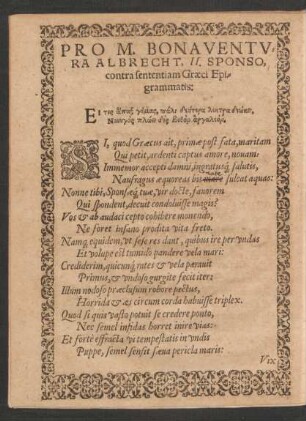 PRO M. BONAVENTV-
RA ALBRECHT. II. SPONSO,
contra sententiam Græci Epi-
grammatis:
SI, quod Græcus ait, primæ post fata, maritam
Qui petit, ardenti captus amore, nouam:
Immemor accepti damni, salutis,
Naufragus æquoreas bis sulcat aquas:
Nonne tibi, Sponsæq; tuæ, vir docte, fauorem
Qui spondent, decuit condoluisse magis?
Vos & ab audaci cepto cohibere monendo,
Ne foret insano prodita vita freto.
Namq; equidem, vt sese res dant, quibus ire per vndas
Et volupe est tumido pandere vela mari:
Crediderim, quicunq; rates & vela parauit
Primus, & vndoso gurgite fecit iter:
Illum nodoso præclusum robore pectus,
Horrida & æs circum corda habuisse triplex.
Quod si quis vasto potuit se credere ponto,
Nec semel infidas horret inire vias:
Et forte effracta vi tempestatis in vndis
Puppe, semel sensit sæua pericla maris:
Vix